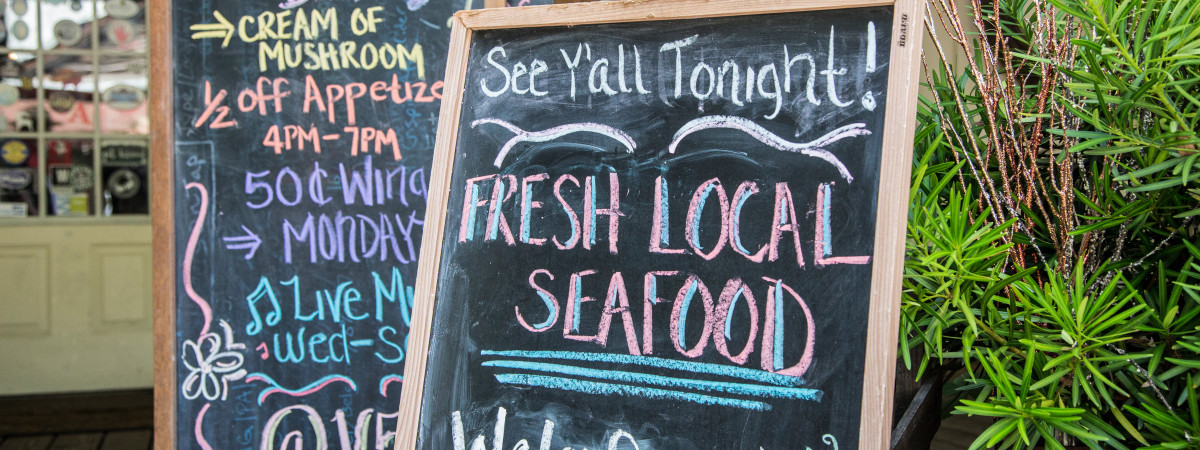 CREAM OF
MUSHROOM
1/2 off Appetize
4PM-7PM
50¢ Wing
MONDAY
Live Mu
Wed-S
@VE
See Y'all Tonight!
FRESH LOCAL
SEAFOOD